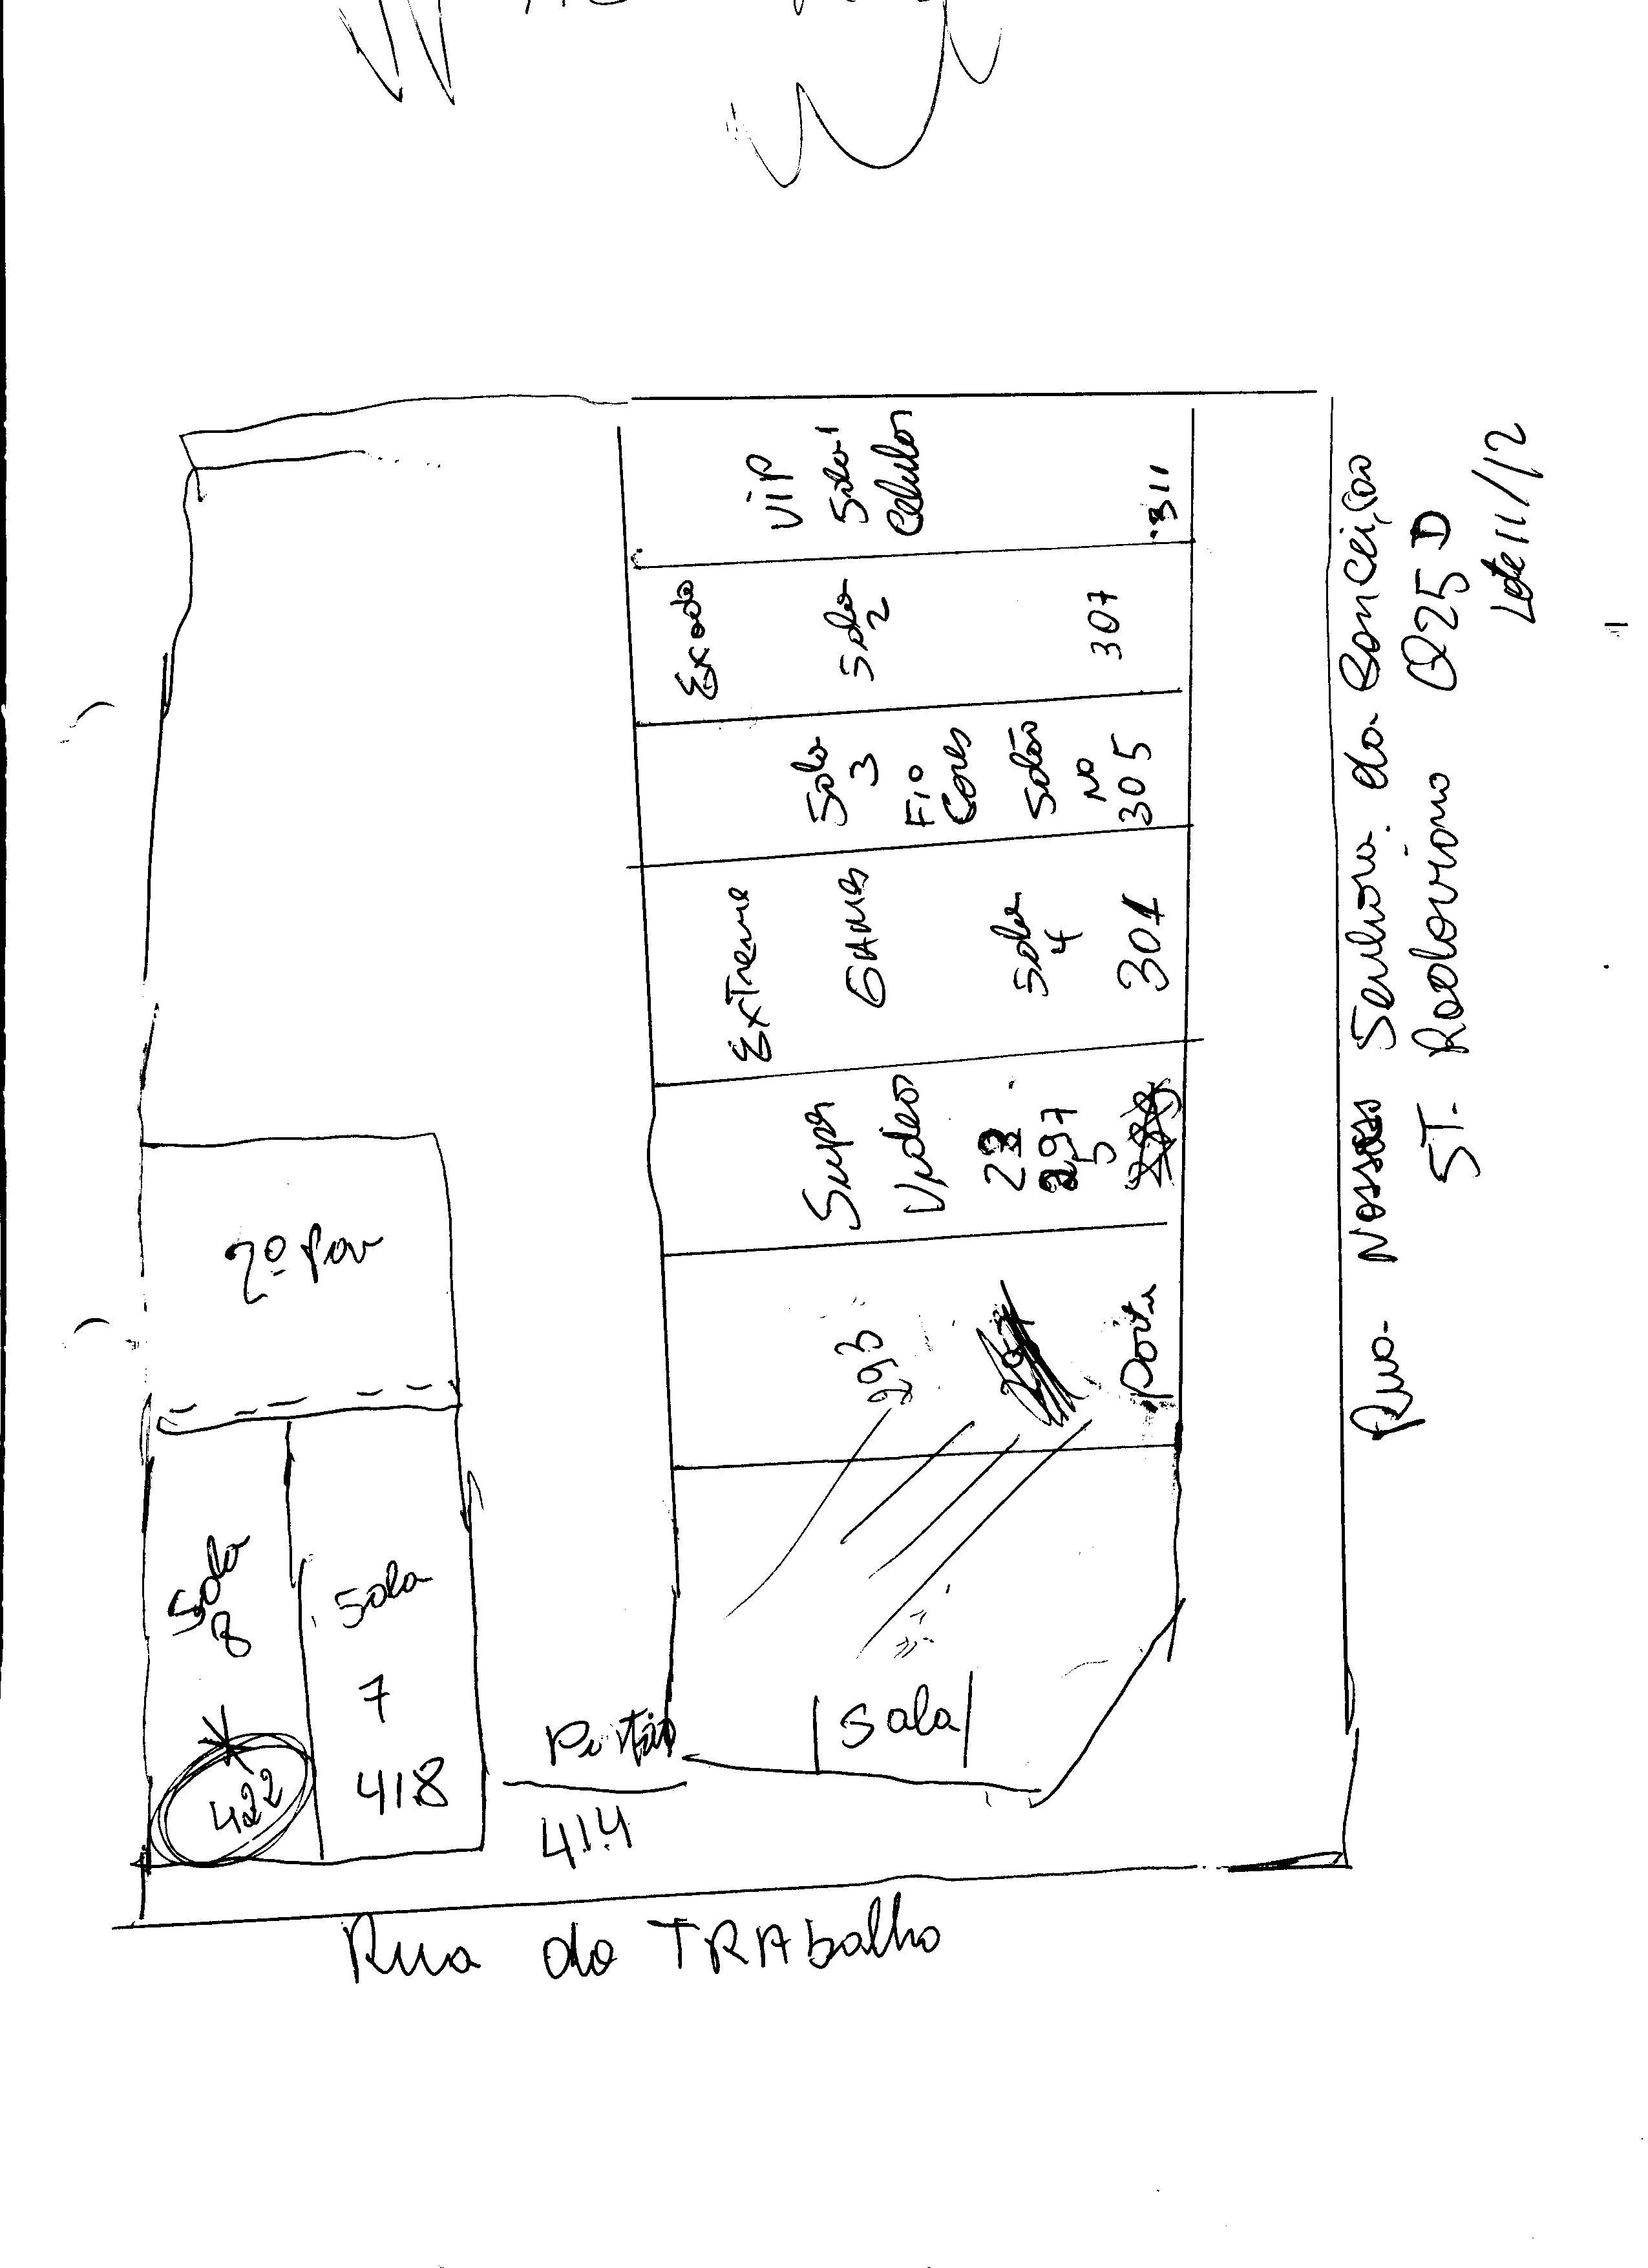 VIP
Sala 1
Celular
311
Exodo
Sala
2
307
Sala
3
Fio
Cores
Salão
No
305
Extreme
GAMES
Sala
4
301
Super
Video
297
5
293
Porta
|Sala|
2º Pav
Sala
8
422
Sala
7
418
Portão
414
Rua do TRAbalho
Rua Nossa Senhora da Conceição
ST. Rodoviário Q25D
Lote 11/12